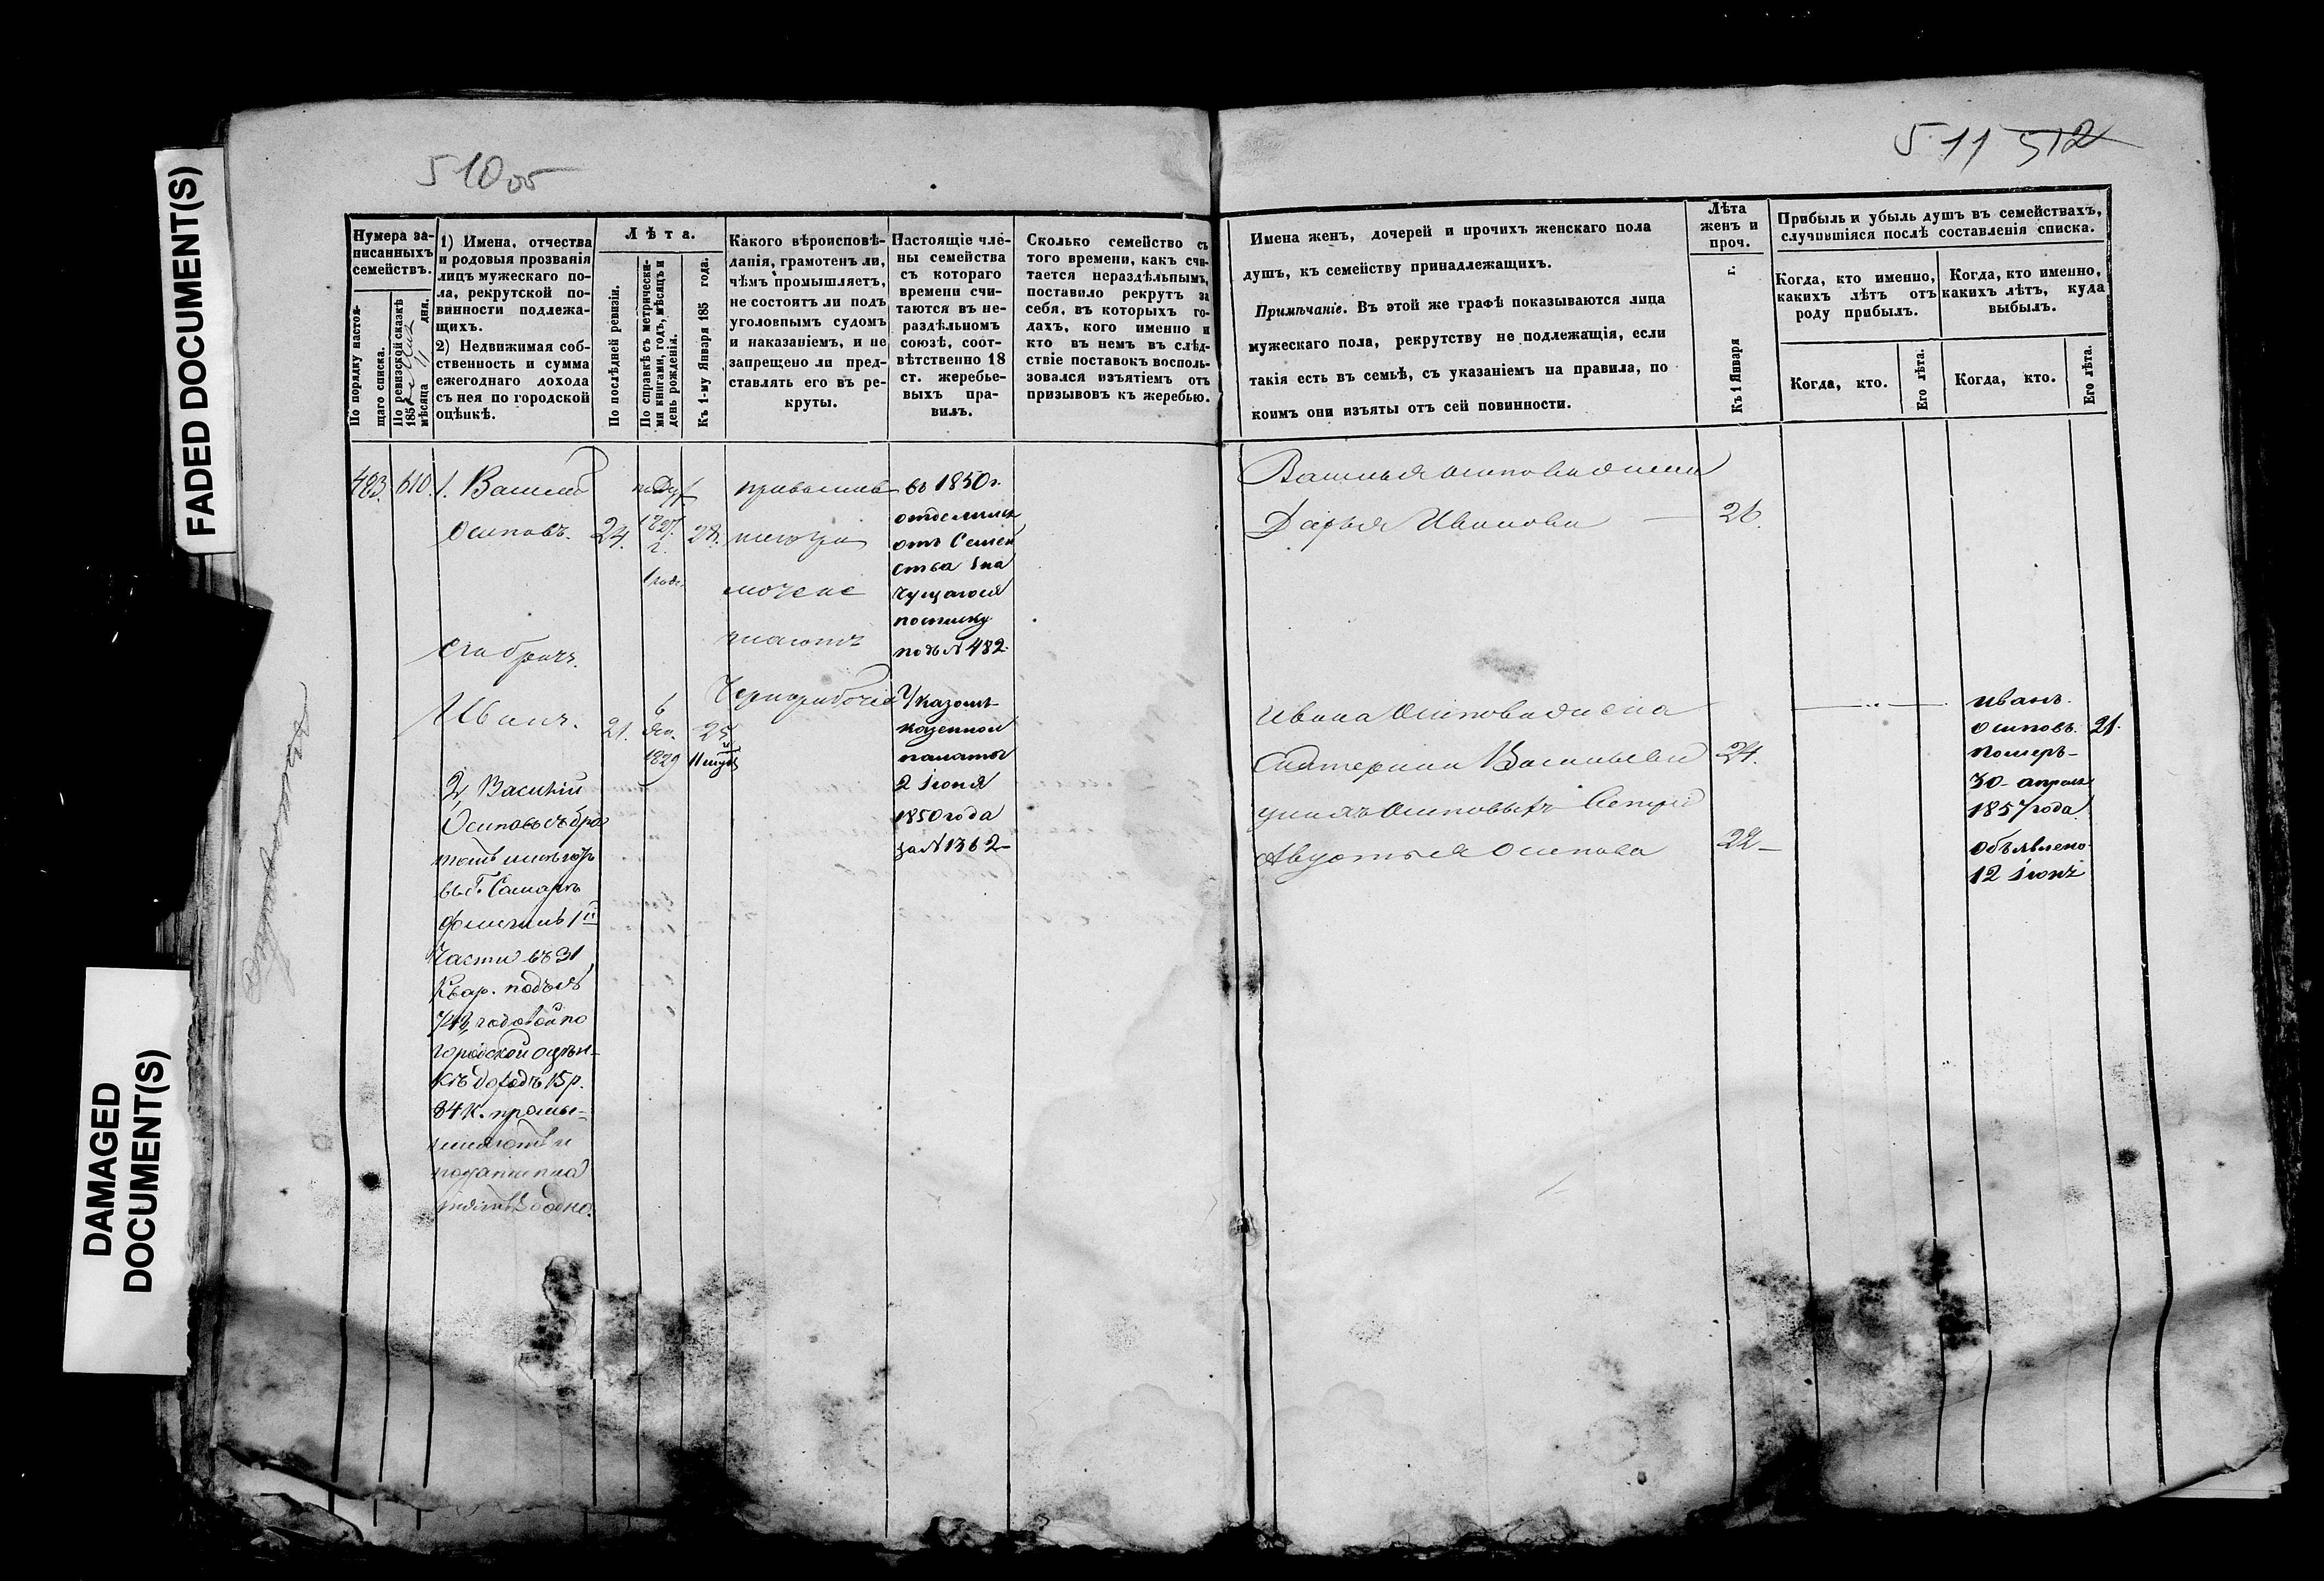 FADED DOCUMENT(S)
DAMAGED
DOCUMENT(S)
510 об
Нумера за-
писанныхъ
семействъ.
По порядку настоя-
щаго списка.
По ревизской сказкѣ
185
мѣсяца 11 дня.
1) Имена, отчества
и родовыя прозванія
лицъ мужескаго по-
ла, рекрутской по-
винности подлежа-
щихъ.
2) Недвижимая соб-
ственность и сумма
ежегоднаго дохода
съ нея по городской
оцѣнкѣ.
Лѣта.
По послѣдней ревизіи.
По справкѣ съ метрически-
ми книгами, годъ, мѣсяцъ и
день рожденія.
Къ 1-му Января 185 года.
Какого вѣроисповѣ-
данія, грамотенъ ли,
чѣмъ промышляетъ,
не состоитъ ли подъ
уголовнымъ судомъ
и наказаніемъ, и не
запрещено ли пред-
ставлять его въ ре-
круты.
Настоящіе чле-
ны семейства
съ котораго
времени счи-
таются въ не-
раздѣльномъ
союзѣ, соот-
вѣтственно 18
ст. жеребье-
выхъ пра-
вилъ.
Сколько семейство съ
того времени, какъ счи-
тается нераздѣльнымъ,
поставило рекрутъ за
себя, въ которыхъ го-
дахъ, кого именно и
кто въ немъ въ слѣд-
ствіе поставокъ восполь-
зовался изъятіемъ отъ
призывовъ къ жеребью.
483. 610. 1. Василій
Осиповъ. 24. 1827 г. 28.
Его братъ.
Иванъ. 21. 6 1829 25
Чернорабочій
въ 1850 г.
отделились
отъ Семей
ства зна
чущагося
посписку
подъ № 482.
Указомъ
казенной
палаты
2 Іюня
1850 года
за № 1362
2, Василій
Осиповъ съ бра
томъ
въ Г. Самарѣ
1й
Части въ 31
Квар. подъ №
годовой по
городской оцѣн-
кѣ доходъ 15 р.
84 к. промы-
шляютъ и
заодно.
511 512
Имена женъ, дочерей и прочихъ женскаго пола
душъ, къ семейству принадлежащихъ.
Примѣчаніе. Въ этой же графѣ показываются лица
мужескаго пола, рекрутству не подлежащія, если
такія есть въ семьѣ, съ указаніемъ на правила, по
коимъ они изъяты отъ сей повинности.
Лѣта
женъ и
проч.
Къ 1 Января г.
Прибыль и убыль душъ въ семействахъ,
случившіяся послѣ составленія списка.
Когда, кто именно,
какихъ лѣтъ отъ
роду прибылъ.
Когда, кто именно,
какихъ лѣтъ, куда
выбылъ.
Когда, кто.
Его лѣта.
Когда, кто.
Его лѣта.
Василья Осипова жена
Дарья Иванова 26.
Ивана Осипова жена
Катерина Васильева 24.
у нихъ Осиповыхъ Сестра
Авдотья Осипова 22
Иванъ
Осиповъ 21.
Померъ
30 апреля
1857 года
объявлено
12 Іюня